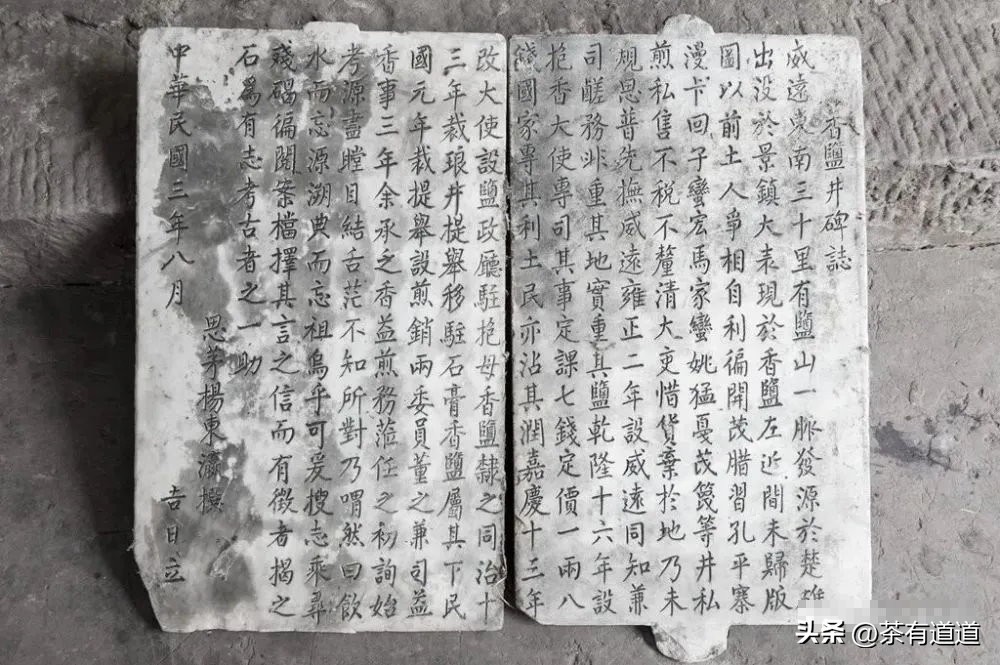 香鹽井碑誌
威遠東南三十里有鹽山一脈發源於楚雄
出沒於景鎮大表現於香鹽左近間未歸版
圖以前土人爭相自利徧開茂腊習孔平寨
漫卡回子蠻宏馬家蠻姚猛戞茂篾等井私
煎私售不稅不釐清大吏惜貨棄於地乃未
規思普先撫威遠雍正二年設威遠同知兼
司鹺務非重其地實重其鹽乾隆十六年設
抱香大使專司其事定課七錢定價一兩八
錢國家專其利土民亦沾其潤嘉慶十三年
改大使設鹽政廳駐抱母香鹽隸之同治十
三年裁琅井提舉移駐石膏香鹽屬其下民
國元年裁提舉設煎銷兩委員董之兼司益
香事三年余承之香益煎務蒞任之初詢始
考源盡瞠目結舌茫不知所對乃喟然曰飲
水而忘源溯典而忘祖烏乎可爰搜志乘尋
殘碣徧閱案檔擇其言之信而有徵者揭之
石爲有志考古者之一助
思茅楊東瀛撰
中華民國三年八月 吉日立
头条 @茶有道道